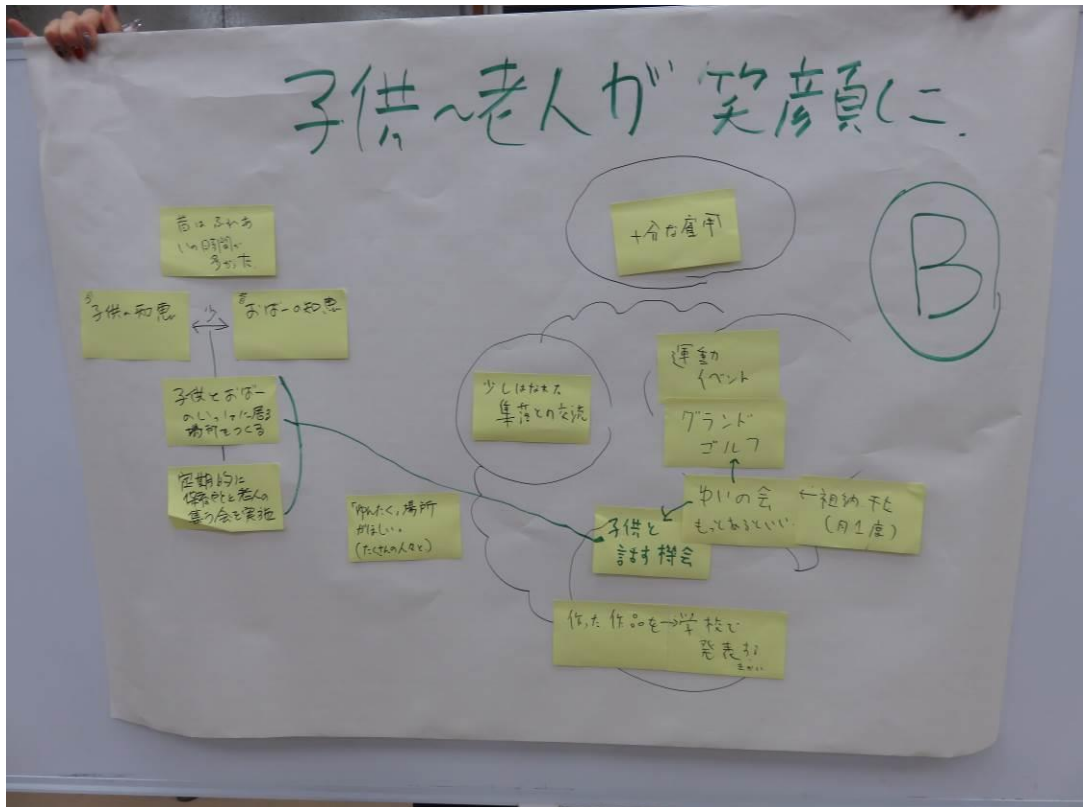 子供～老人が笑顔に.
B
十分な雇用
昔はふれあ
いの時間が
多かった
子供の知恵
少
おばーの知恵
子供とおばー
のいっしょに居る
場所をつくる
定期的に
老人の
集う会を実施
「ゆんたく」場所
がほしい。
(たくさんの人々と)
少しはなれた
集落との交流
運動
イベント
グランド
ゴルフ
ゆいの会
もっとあるといい
←祖納
(月1度)
子供と
話す機会
作った作品を→学校で
発表する
きかい